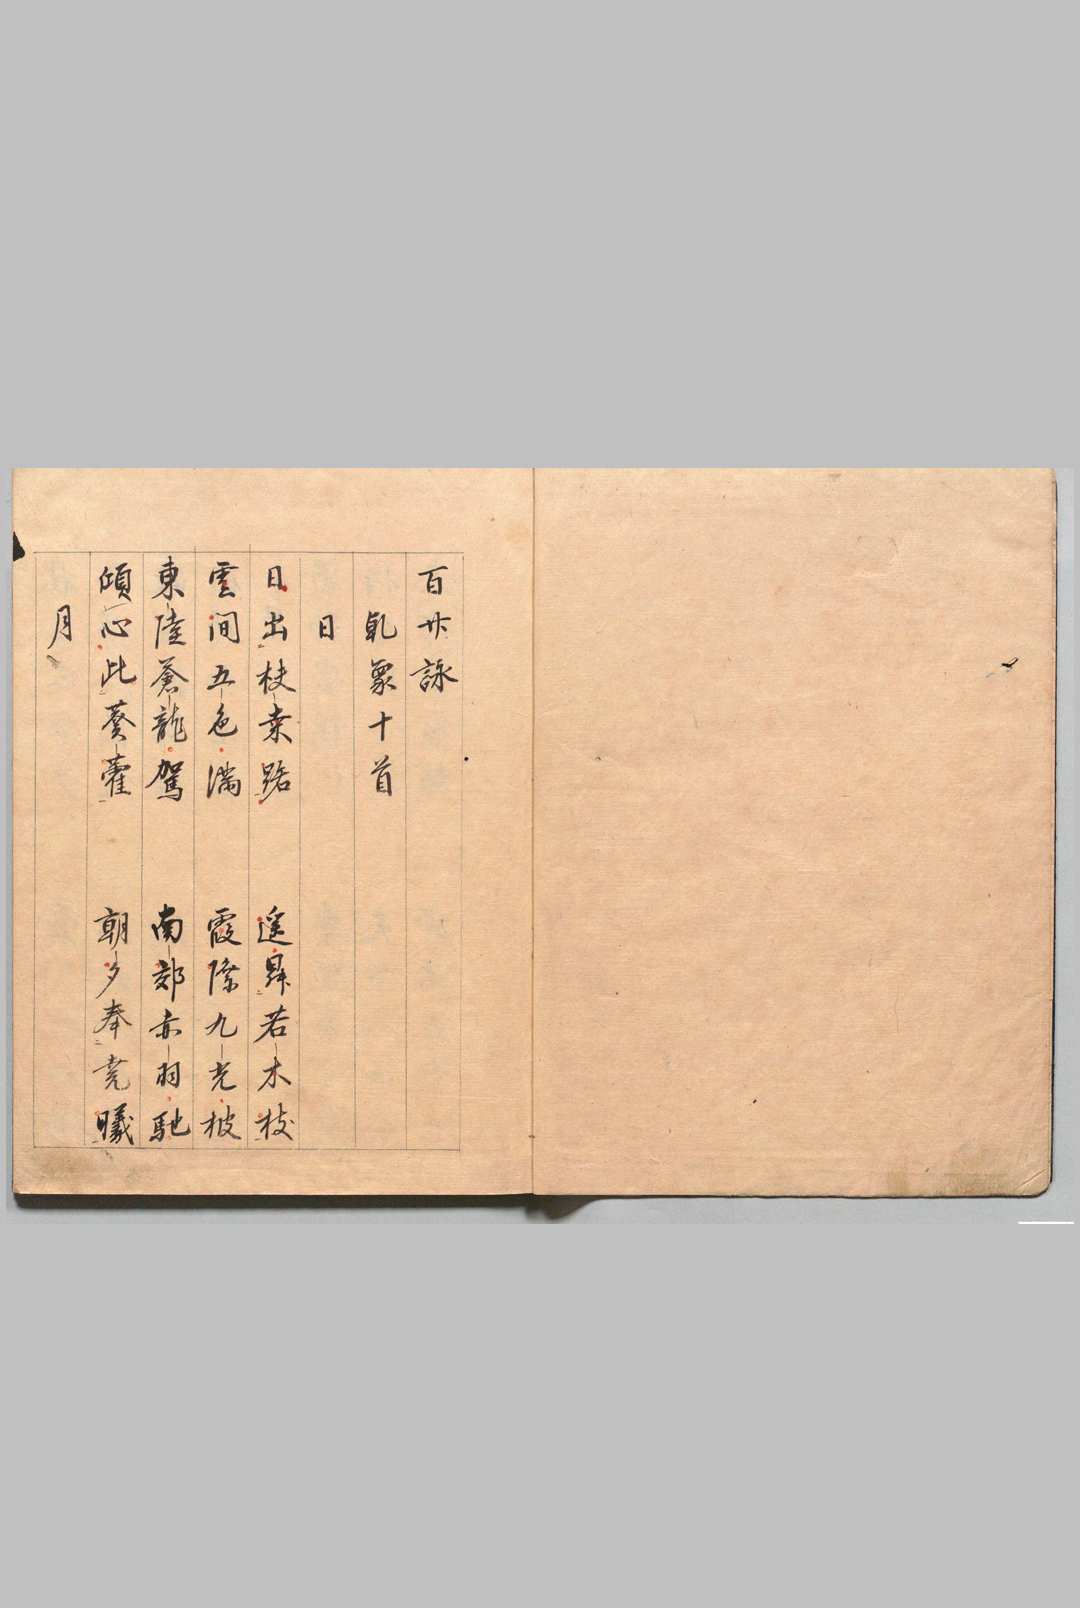 百廿詠
乾象十首
日
日出扶桒路 遥昇若木枝
雲間五色満 霞際九光披
東陸蒼龍駕 南郊赤羽馳
傾心比葵藿 朝夕奉尭曦
月